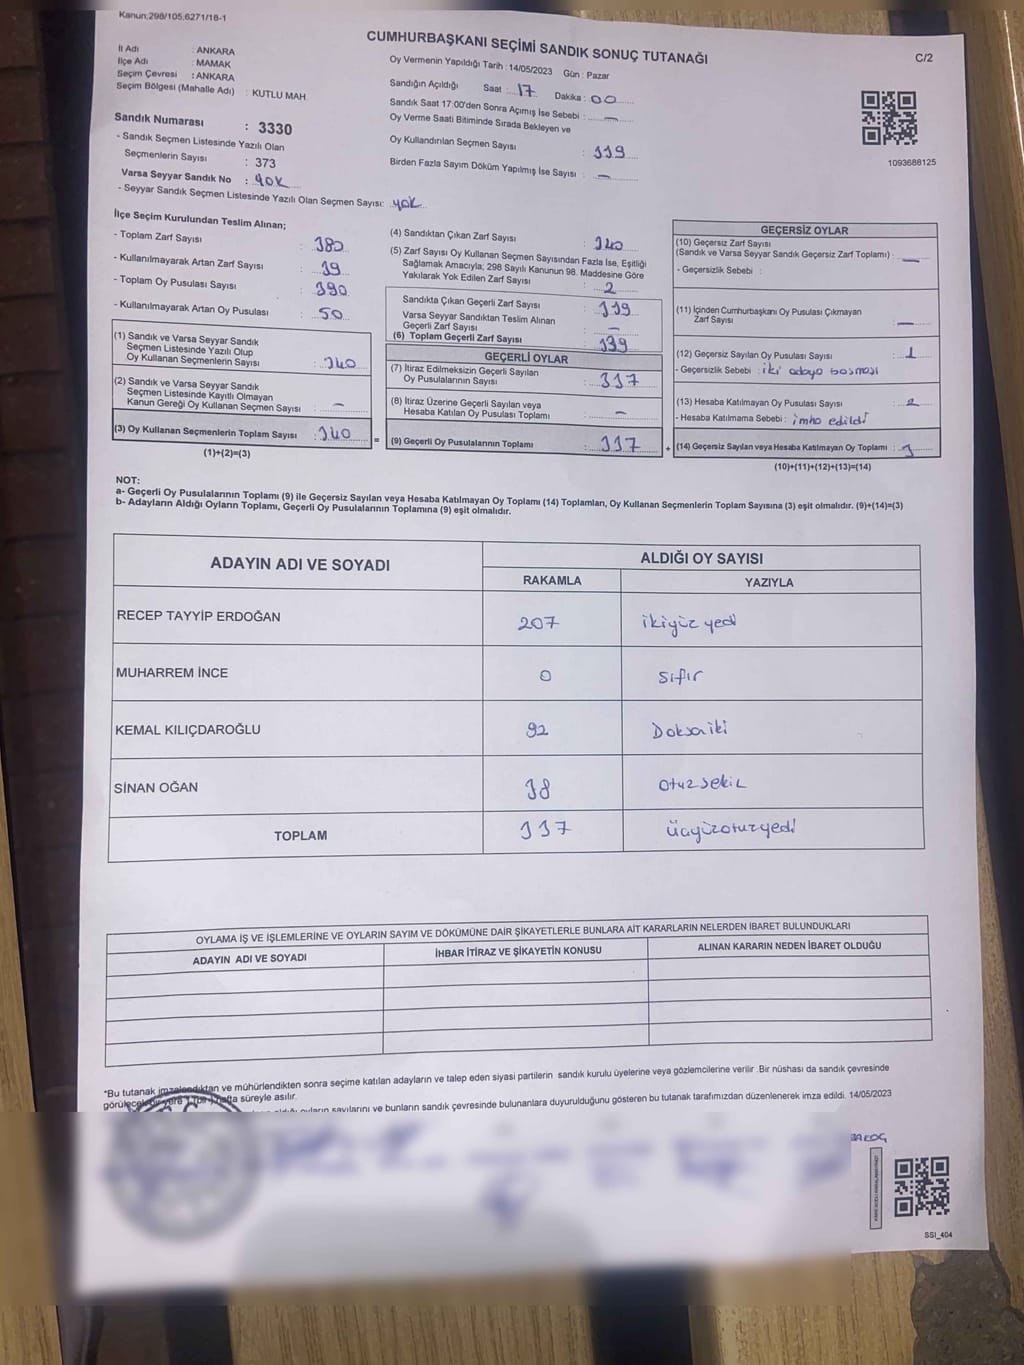 Kanun;298/105;6271/18-1
CUMHURBAŞKANI SEÇİMİ SANDIK SONUÇ TUTANAĞI
C/2
İl Adı : ANKARA
İlçe Adı : MAMAK
Seçim Çevresi : ANKARA
Seçim Bölgesi (Mahalle Adı) : KUTLU MAH
Oy Vermenin Yapıldığı Tarih : 14/05/2023 Gün : Pazar
Sandığın Açıldığı Saat : 17 Dakika : 00
Sandık Saat 17:00'den Sonra Açımış İse Sebebi : —
Oy Verme Saati Bitiminde Sırada Bekleyen ve
Oy Kullandırılan Seçmen Sayısı : 339
Birden Fazla Sayım Döküm Yapılmış İse Sayısı : —
1093688125
Sandık Numarası : 3330
- Sandık Seçmen Listesinde Yazılı Olan
Seçmenlerin Sayısı : 373
Varsa Seyyar Sandık No : YOK
- Seyyar Sandık Seçmen Listesinde Yazılı Olan Seçmen Sayısı: YOK
İlçe Seçim Kurulundan Teslim Alınan;
- Toplam Zarf Sayısı : 380
- Kullanılmayarak Artan Zarf Sayısı : 39
- Toplam Oy Pusulası Sayısı : 390
- Kullanılmayarak Artan Oy Pusulası : 50
(1) Sandık ve Varsa Seyyar Sandık
Seçmen Listesinde Yazılı Olup
Oy Kullanan Seçmenlerin Sayısı : 340
(2) Sandık ve Varsa Seyyar Sandık
Seçmen Listesinde Kayıtlı Olmayan
Kanun Gereği Oy Kullanan Seçmen Sayısı : —
(3) Oy Kullanan Seçmenlerin Toplam Sayısı : 340
(1)+(2)=(3)
(4) Sandıktan Çıkan Zarf Sayısı : 340
(5) Zarf Sayısı Oy Kullanan Seçmen Sayısından Fazla İse, Eşitliği
Sağlamak Amacıyla; 298 Sayılı Kanunun 98. Maddesine Göre
Yakılarak Yok Edilen Zarf Sayısı : 2
Sandıkta Çıkan Geçerli Zarf Sayısı : 339
Varsa Seyyar Sandıktan Teslim Alınan
Geçerli Zarf Sayısı : —
(6) Toplam Geçerli Zarf Sayısı : 339
GEÇERLİ OYLAR
(7) İtiraz Edilmeksizin Geçerli Sayılan
Oy Pusulalarının Sayısı : 337
(8) İtiraz Üzerine Geçerli Sayılan veya
Hesaba Katılan Oy Pusulası Toplamı : —
= (9) Geçerli Oy Pusulalarının Toplamı : 337 +
GEÇERSİZ OYLAR
(10) Geçersiz Zarf Sayısı
(Sandık ve Varsa Seyyar Sandık Geçersiz Zarf Toplamı) : —
- Geçersizlik Sebebi :
(11) İçinden Cumhurbaşkanı Oy Pusulası Çıkmayan
Zarf Sayısı : —
(12) Geçersiz Sayılan Oy Pusulası Sayısı : 1
- Geçersizlik Sebebi : iki adaya basması
(13) Hesaba Katılmayan Oy Pusulası Sayısı : 2
- Hesaba Katılmama Sebebi : imha edildi
(14) Geçersiz Sayılan veya Hesaba Katılmayan Oy Toplamı : 3
(10)+(11)+(12)+(13)=(14)
NOT:
a- Geçerli Oy Pusulalarının Toplamı (9) ile Geçersiz Sayılan veya Hesaba Katılmayan Oy Toplamı (14) Toplamları, Oy Kullanan Seçmenlerin Toplam Sayısına (3) eşit olmalıdır. (9)+(14)=(3)
b- Adayların Aldığı Oyların Toplamı, Geçerli Oy Pusulalarının Toplamına (9) eşit olmalıdır.
ADAYIN ADI VE SOYADI
ALDIĞI OY SAYISI
RAKAMLA YAZIYLA
RECEP TAYYİP ERDOĞAN 207 ikiyüz yedi
MUHARREM İNCE 0 sıfır
KEMAL KILIÇDAROĞLU 92 Doksaiki
SİNAN OĞAN 38 otuzsekiz
TOPLAM 337 üçyüzotuzyedi
OYLAMA İŞ VE İŞLEMLERİNE VE OYLARIN SAYIM VE DÖKÜMÜNE DAİR ŞİKAYETLERLE BUNLARA AİT KARARLARIN NELERDEN İBARET BULUNDUKLARI
ADAYIN ADI VE SOYADI İHBAR İTİRAZ VE ŞİKAYETİN KONUSU ALINAN KARARIN NEDEN İBARET OLDUĞU
*Bu tutanak imzalandıktan ve mühürlendikten sonra seçime katılan adayların ve talep eden siyasi partilerin sandık kurulu üyelerine veya gözlemcilerine verilir .Bir nüshası da sandık çevresinde
görülecek bir yere 1 (bir) hafta süreyle asılır.
oyların sayılarını ve bunların sandık çevresinde bulunanlara duyurulduğunu gösteren bu tutanak tarafımızdan düzenlenerek imza edildi. 14/05/2023
SSI_404